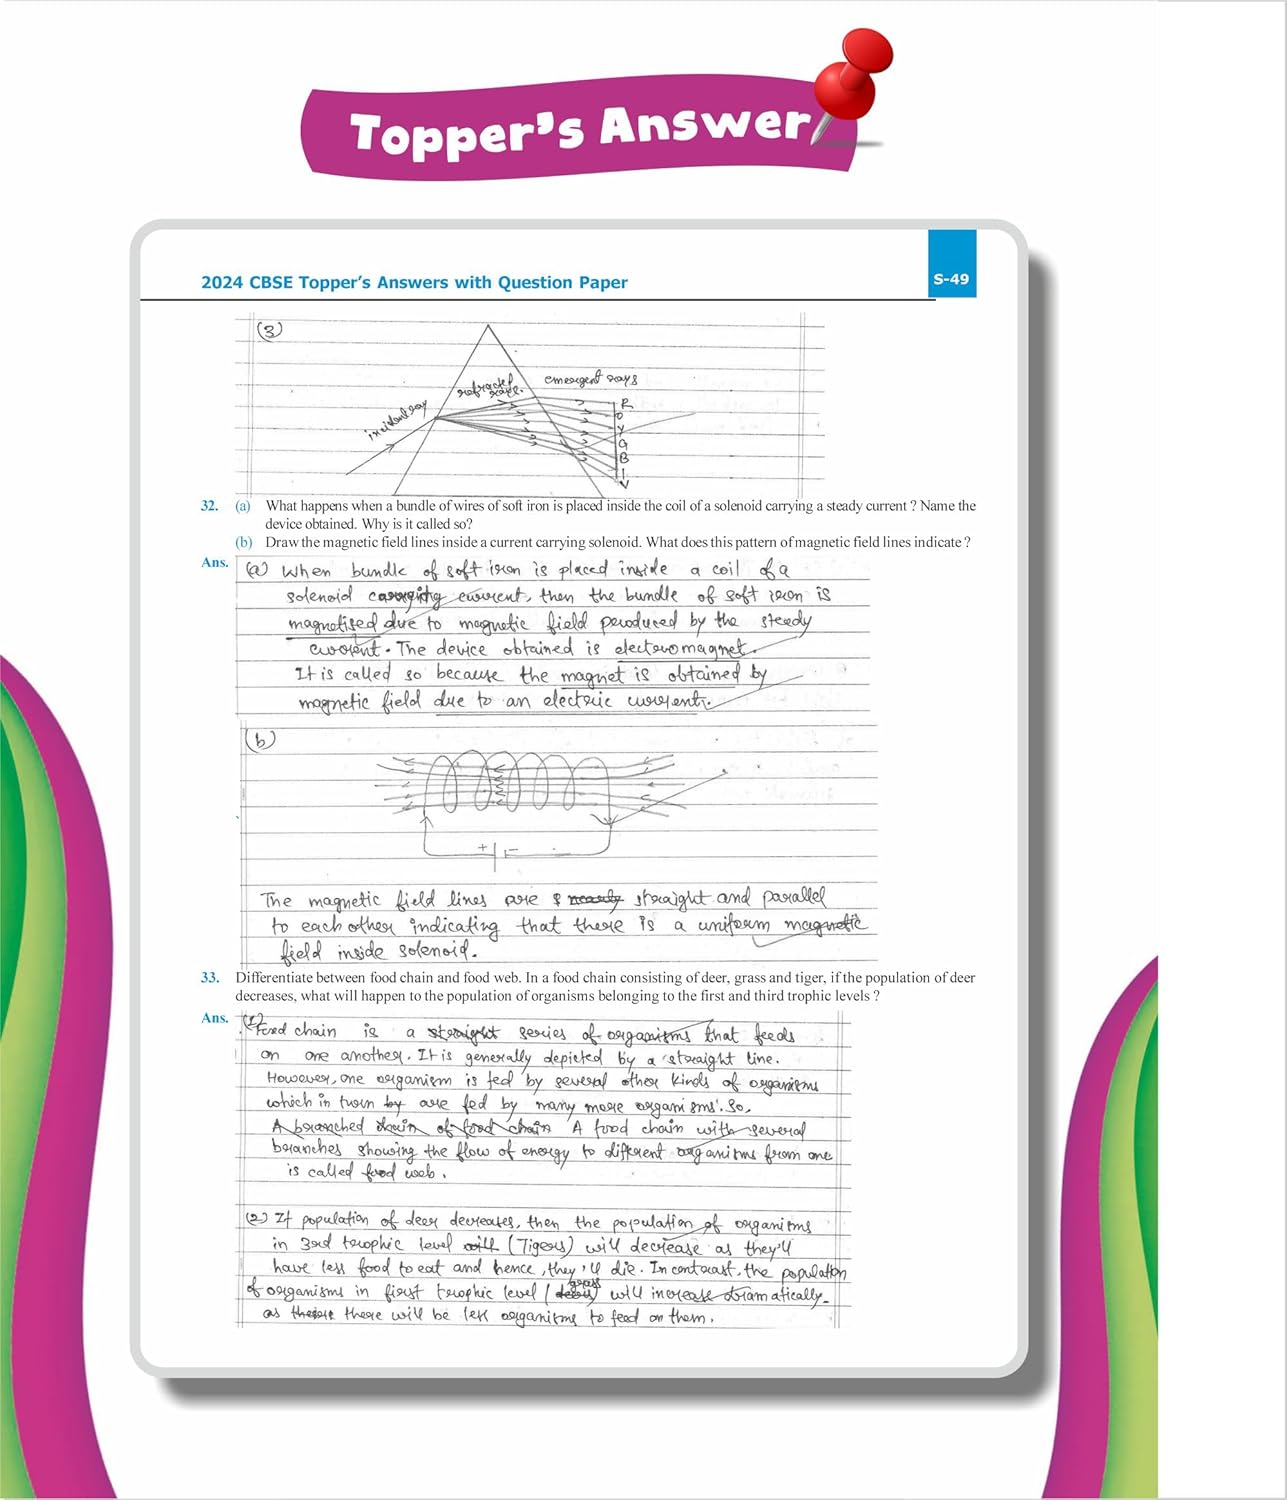 Topper's Answer
2024 CBSE Topper's Answers with Question Paper
S-49
(3)
incident ray
refracted rays.
emergent rays
R
O
Y
G
B
I
V
32. (a) What happens when a bundle of wires of soft iron is placed inside the coil of a solenoid carrying a steady current ? Name the
device obtained. Why is it called so?
(b) Draw the magnetic field lines inside a current carrying solenoid. What does this pattern of magnetic field lines indicate ?
Ans. (a) When bundle of soft iron is placed inside a coil of a
solenoid carrying current, then the bundle of soft iron is
magnetised due to magnetic field produced by the steady
current. The device obtained is electromagnet.
It is called so because the magnet is obtained by
magnetic field due to an electric current.
(b)
+ -
The magnetic field lines are nearly straight and parallel
to each other indicating that there is a uniform magnetic
field inside solenoid.
33. Differentiate between food chain and food web. In a food chain consisting of deer, grass and tiger, if the population of deer
decreases, what will happen to the population of organisms belonging to the first and third trophic levels ?
Ans. (1)
Food chain is a straight series of organisms that feeds
on one another. It is generally depicted by a straight line.
However, one organism is fed by several other kinds of organisms
which in turn by are fed by many more organisms. So,
A branched chain of food chain A food chain with several
branches showing the flow of energy to different organisms from one
is called food web.
(2) If population of deer decreases, then the population of organisms
in 3rd trophic level will (Tigers) will decrease as they'll
have less food to eat and hence, they'll die. In contrast, the population
grass
of organisms in first trophic level (deer) will increase dramatically
as there will be less organisms to feed on them.